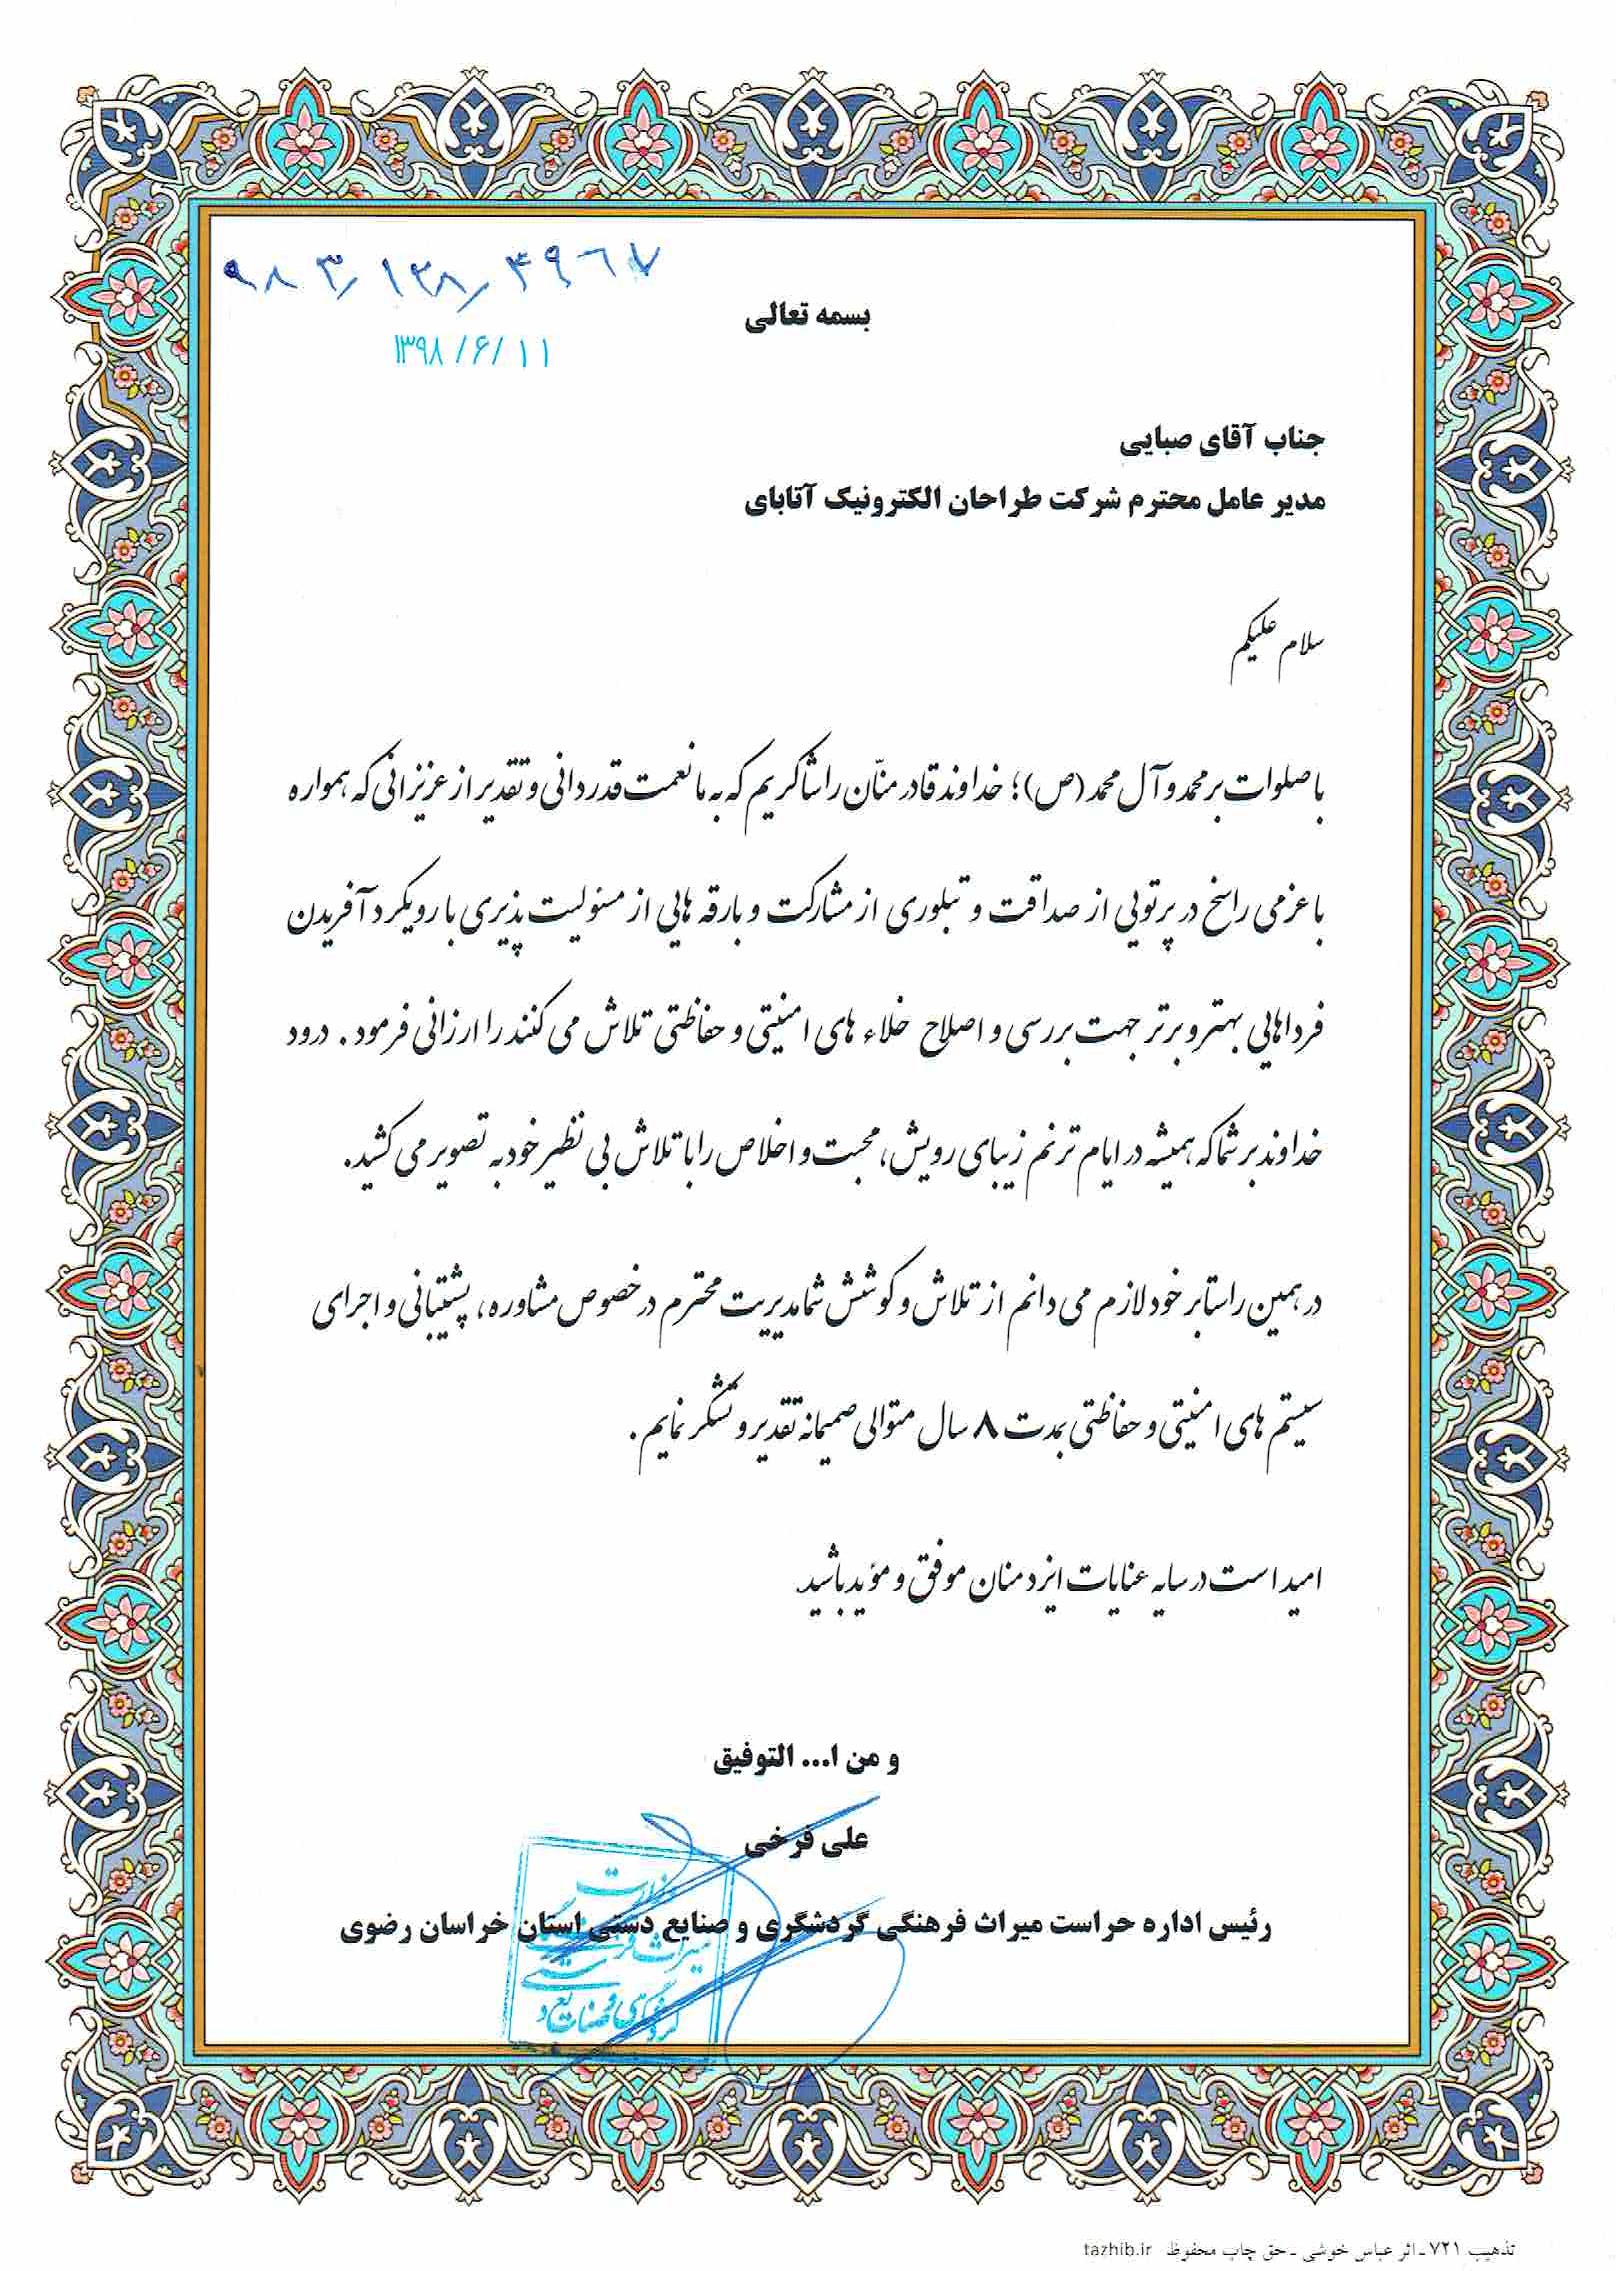 ۹۸۳/۱۲۸/۴۹۶۷
۱۳۹۸/۶/۱۱
بسمه تعالی
جناب آقای صبایی
مدیر عامل محترم شرکت طراحان الکترونیک آتابای
سلام علیکم
با صلوات بر محمد و آل محمد (ص)؛ خداوند قادر منّان را شاکریم که به ما نعمت قدردانی و تقدیر از عزیزانی که همواره
با عزمی راسخ در پرتویی از صداقت و تبلوری از مشارکت و بارقه هایی از مسئولیت پذیری با رویکرد آفریدن
فرداهایی بهتر و برتر جهت بررسی و اصلاح خلاء های امنیتی و حفاظتی تلاش می کنند را ارزانی فرمود. درود
خداوند بر شما که همیشه در ایام ترنم زیبای رویش، محبت و اخلاص را با تلاش بی نظیر خود به تصویر می کشید.
در همین راستا بر خود لازم می دانم از تلاش و کوشش شما مدیریت محترم در خصوص مشاوره، پشتیبانی و اجرای
سیستم های امنیتی و حفاظتی بمدت ۸ سال متوالی صمیمانه تقدیر و تشکر نمایم.
امید است در سایه عنایات ایزد منان موفق و مؤید باشید
و من ا... التوفیق
علی فرخی
رئیس اداره حراست میراث فرهنگی گردشگری و صنایع دستی استان خراسان رضوی
وزارت
میراث فرهنگی
گردشگری و صنایع د
ستی
تذهیب ۷۲۱ - اثر عباس خوشی - حق چاپ محفوظ tazhib.ir